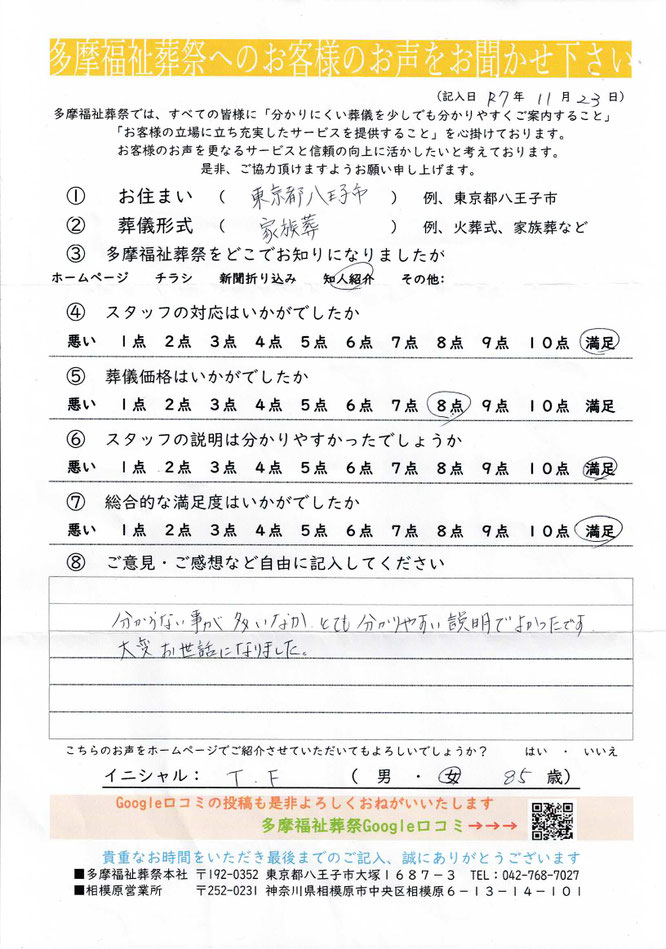 多摩福祉葬祭へのお客様のお声をお聞かせ下さい
(記入日 R7 年 11 月 23 日)
多摩福祉葬祭では、すべての皆様に「分かりにくい葬儀を少しでも分かりやすくご案内すること」
「お客様の立場に立ち充実したサービスを提供すること」を心掛けております。
お客様のお声を更なるサービスと信頼の向上に活かしたいと考えております。
是非、ご協力頂けますようお願い申し上げます。
① お住まい ( 東京都八王子市 ) 例、東京都八王子市
② 葬儀形式 ( 家族葬 ) 例、火葬式、家族葬など
③ 多摩福祉葬祭をどこでお知りになりましたか
ホームページ チラシ 新聞折り込み 知人紹介 その他:
④ スタッフの対応はいかがでしたか
悪い 1点 2点 3点 4点 5点 6点 7点 8点 9点 10点 満足
⑤ 葬儀価格はいかがでしたか
悪い 1点 2点 3点 4点 5点 6点 7点 8点 9点 10点 満足
⑥ スタッフの説明は分かりやすかったでしょうか
悪い 1点 2点 3点 4点 5点 6点 7点 8点 9点 10点 満足
⑦ 総合的な満足度はいかがでしたか
悪い 1点 2点 3点 4点 5点 6点 7点 8点 9点 10点 満足
⑧ ご意見・ご感想など自由に記入してください
分からない事が多いなか、とても分かりやすい説明でよかったです。
大変お世話になりました。
こちらのお声をホームページでご紹介させていただいてもよろしいでしょうか? はい ・ いいえ
イニシャル: T.F ( 男 ・ 女 85 歳)
Google口コミの投稿も是非よろしくおねがいいたします
多摩福祉葬祭Google口コミ→→→
貴重なお時間をいただき最後までのご記入、誠にありがとうございます
■多摩福祉葬祭本社 〒192-0352 東京都八王子市大塚1687-3 TEL:042-768-7027
■相模原営業所 〒252-0231 神奈川県相模原市中央区相模原6-13-14-101